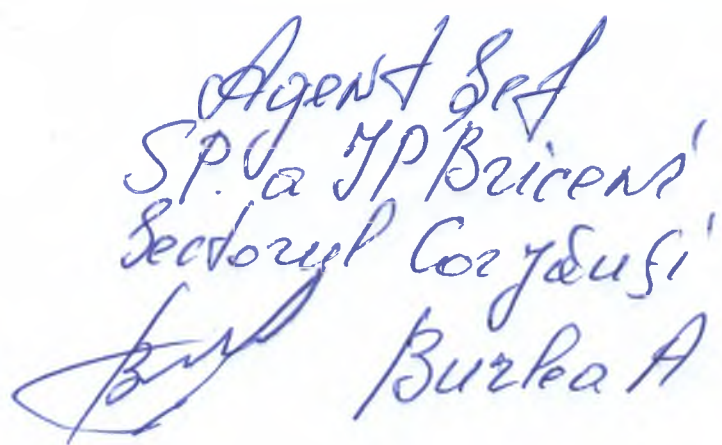 Agent Șef
SP. a IP Briceni
Sectorul Corjăuși
Burlea A